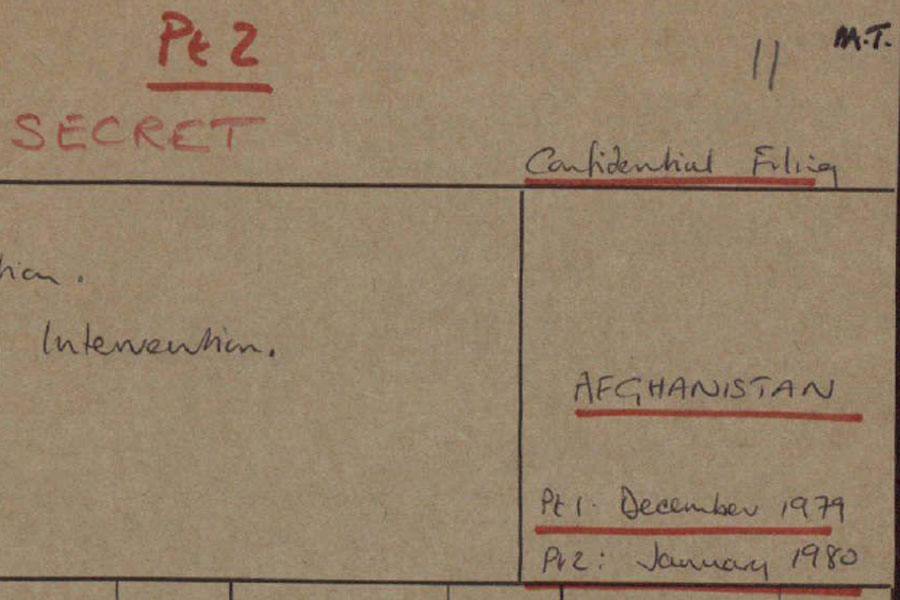 Pt 2
M.T.
SECRET
Confidential Filing
Intervention.
AFGHANISTAN
Pt 1. December 1979
Pt 2: January 1980